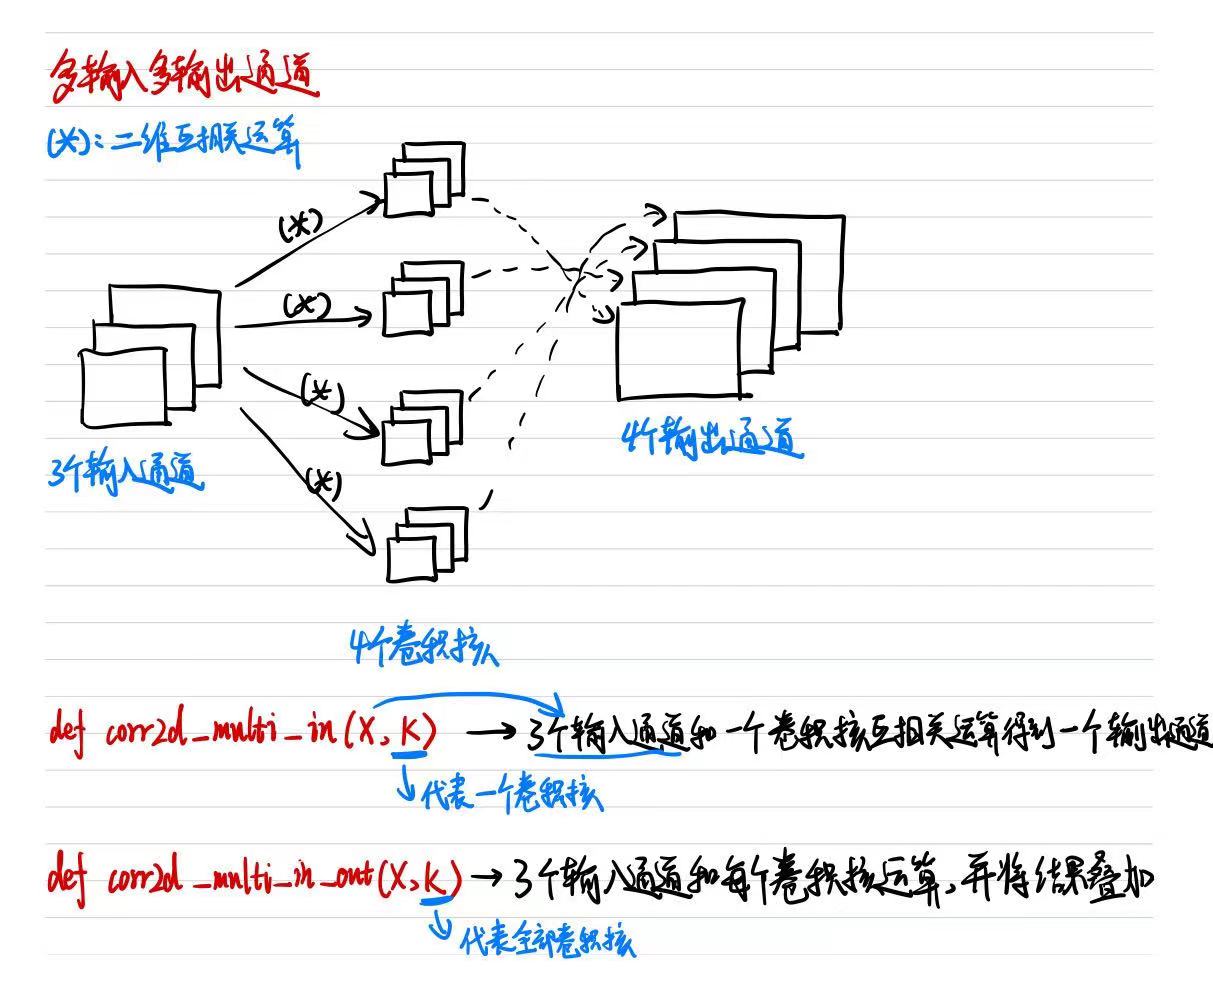 多输入多输出通道
(*):二维互相关运算
(*)
(*)
(*)
(*)
3个输入通道
4个输出通道
4个卷积核
def corr2d_multi_in(X,K) → 3个输入通道和一个卷积核互相关运算得到一个输出通道
代表一个卷积核
def corr2d_multi_in_out(X,K) → 3个输入通道和每个卷积核运算,并将结果叠加
代表全部卷积核